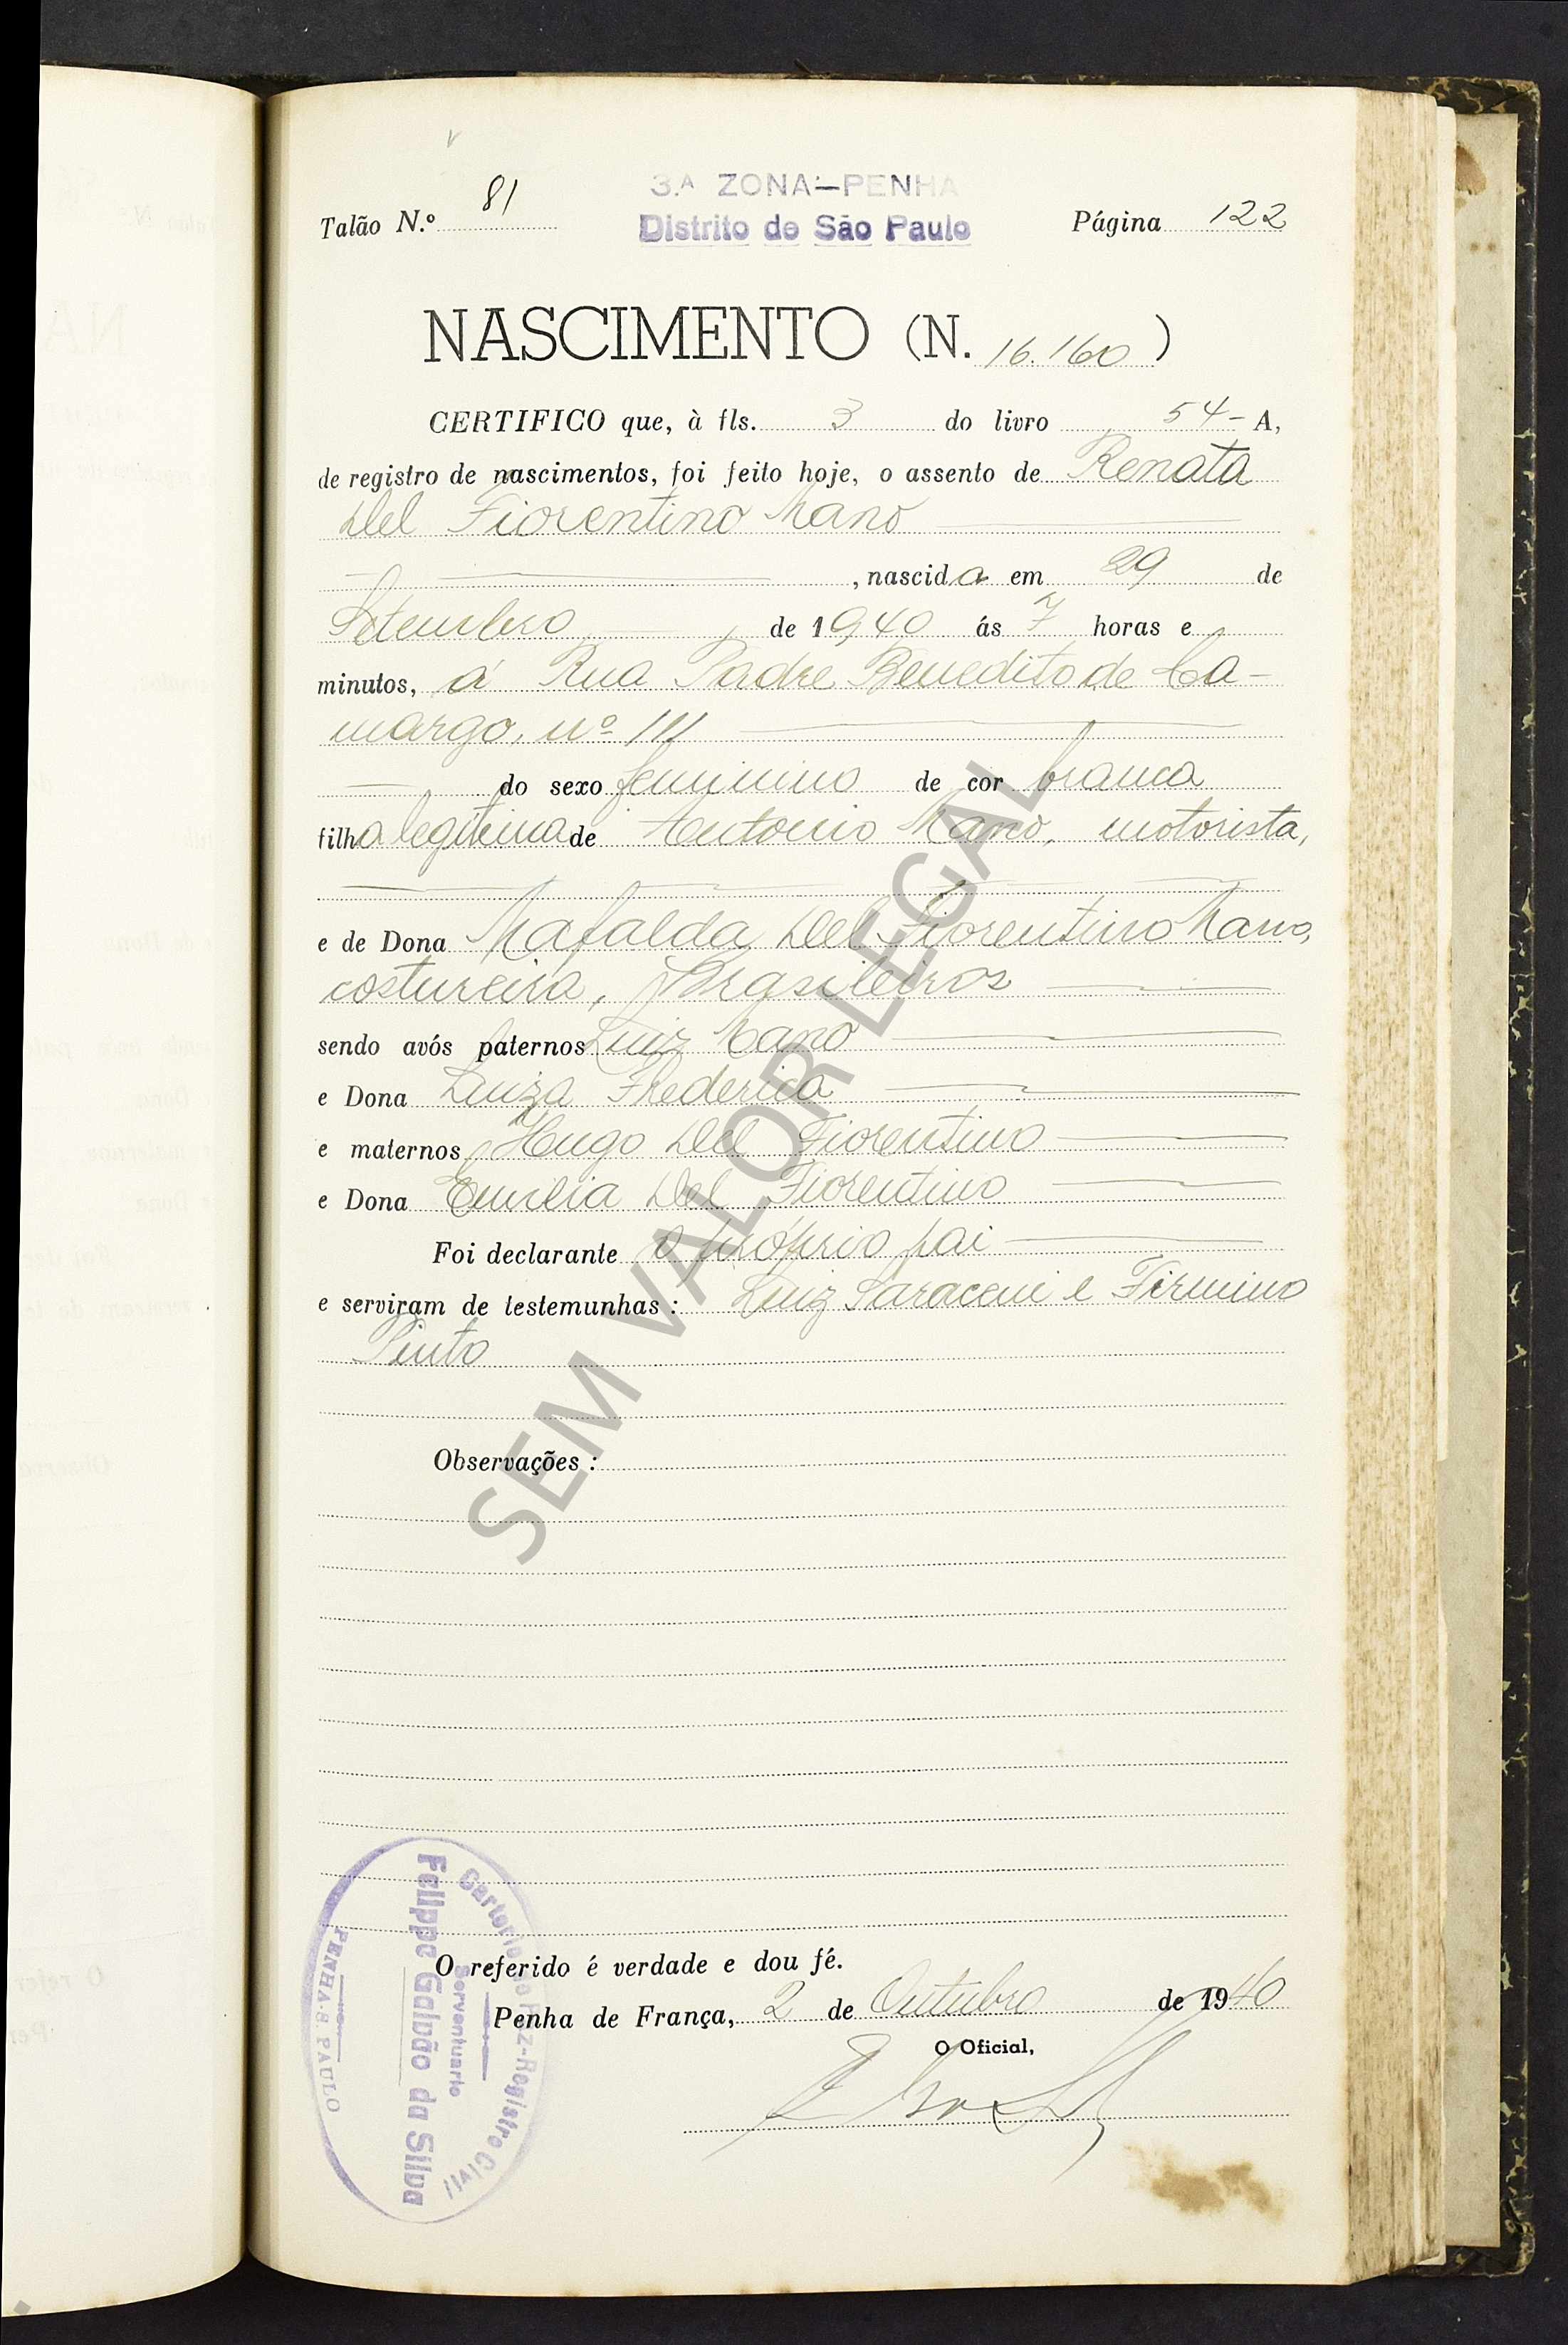 Talão N.º 81
3.ª ZONA—PENHA
Distrito de São Paulo
Página 122
NASCIMENTO (N. 16.160)
CERTIFICO que, à fls. 3 do livro 54- A,
de registro de nascimentos, foi feito hoje, o assento de Renata
Del Fiorentino Mano
, nascida em 29 de
Setembro de 1940 ás 7 horas e
minutos, á Rua Padre Benedito de Ca-
margo, nº 111
do sexo feminino de cor branca
filha legitima de Antonio Mano, motorista,
e de Dona Mafalda Del Fiorentino Mano,
costureira, Brasileiros
sendo avós paternos Luiz Mano
e Dona Luiza Frederica
e maternos Hugo Del Fiorentino
e Dona Emilia Del Fiorentino
Foi declarante o próprio pai
e serviram de testemunhas: Luiz Saraceni e Firmino
Pinto
Observações:
SEM VALOR LEGAL
O referido é verdade e dou fé.
Penha de França, 2 de Outubro de 1940
O Oficial,
Cartorio de Paz-Registro Civil
Serventuario
Felippe Galvão da Silva
PENHA-S. PAULO